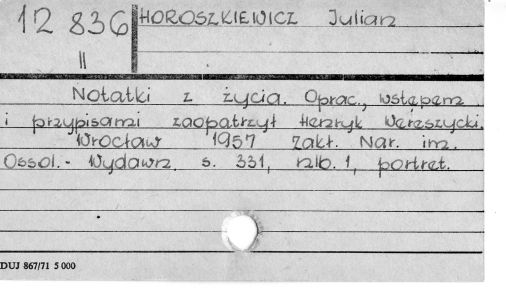 12 836
II
HOROSZKIEWICZ Julian
Notatki z życia. Oprac., wstępem
i przypisami zaopatrzył Henryk Wereszycki.
Wrocław 1957 Zakł. Nar. im.
Ossol.- Wydawn. s. 331, nlb. 1, portret.
DUJ 867/71 5 000